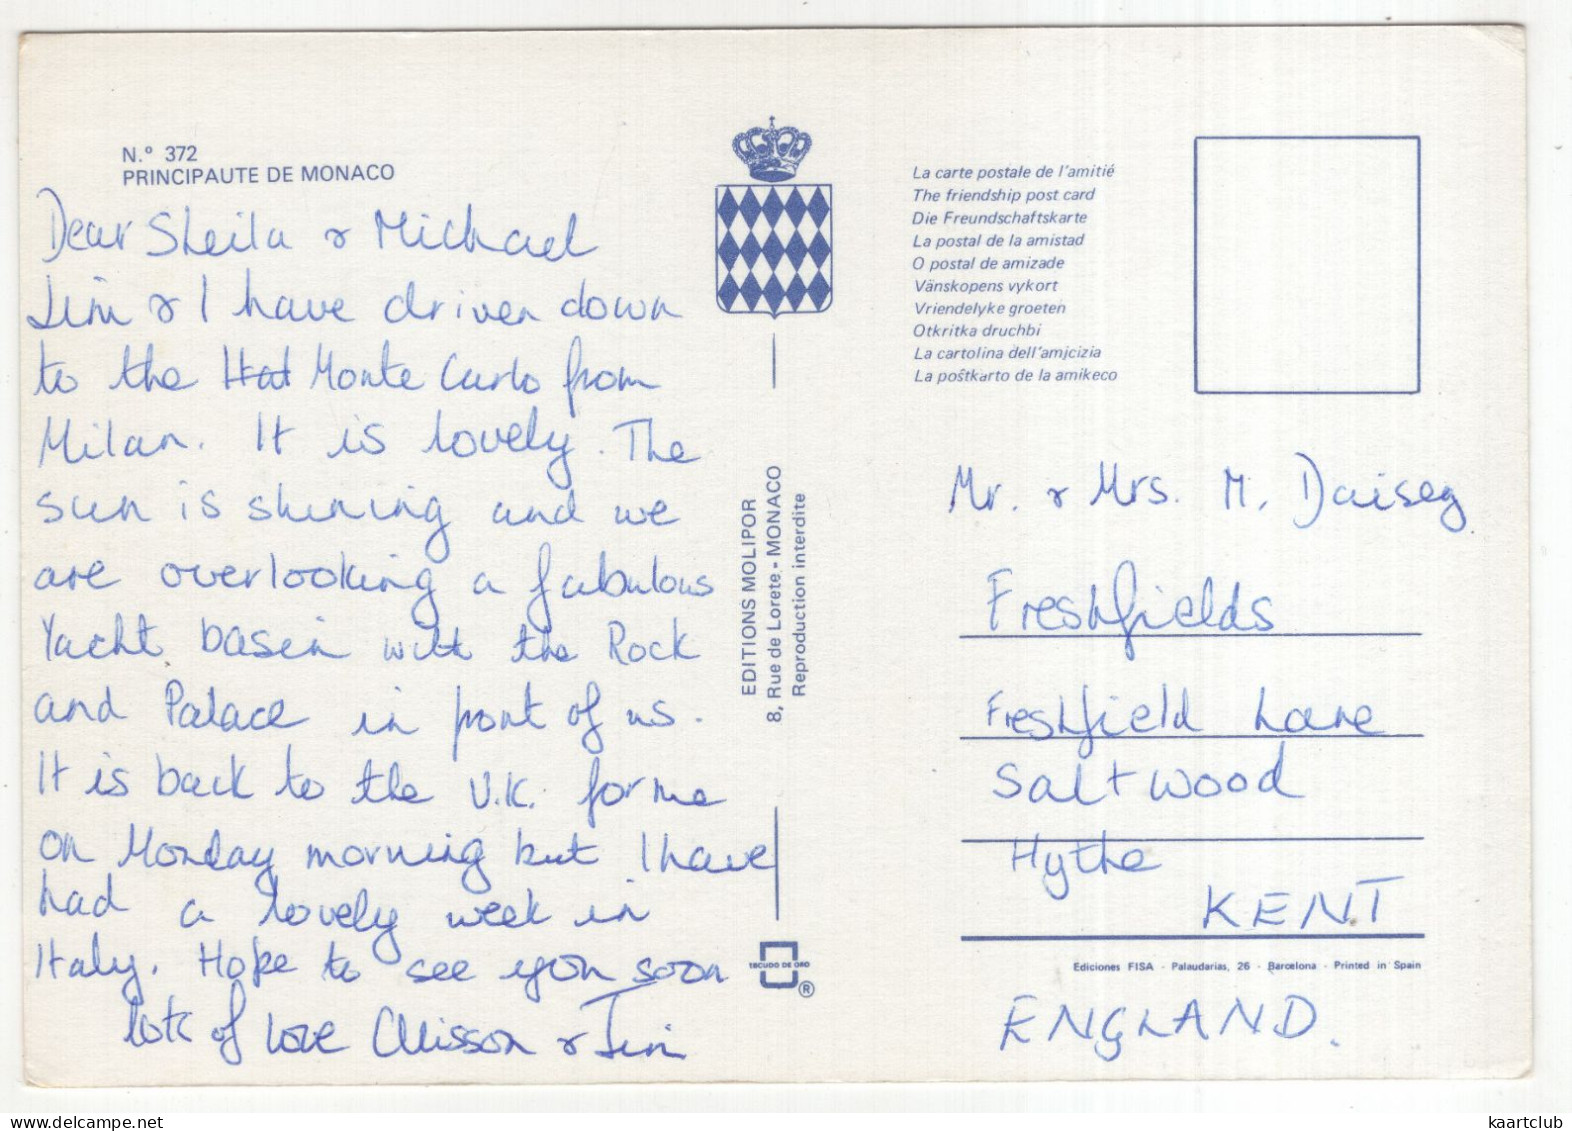 N.º 372
PRINCIPAUTE DE MONACO
Dear Sheila & Michael
Jim & I have driven down
to the Hot Monte Carlo from
Milan. It is lovely. The
sun is shining and we
are overlooking a fabulous
Yacht basein with the Rock
and Palace in front of us.
It is back to the U.K. for me
on Monday morning but I have
had a lovely week in
Italy. Hope to see you soon
lots of love Allisson & Jim
EDITIONS MOLIPOR
8, Rue de Lorete. - MONACO
Reproduction interdite
ESCUDO DE ORO
®
La carte postale de l'amitié
The friendship post card
Die Freundschaftskarte
La postal de la amistad
O postal de amizade
Vänskopens vykort
Vriendelyke groeten
Otkritka druchbi
La cartolina dell'amjcizia
La poŝtkarto de la amikeco
Mr. & Mrs. M. Daisey
Freshfields
Freshfield Lane
Saltwood
Hythe
KENT
Ediciones FISA - Palaudarias, 26 - Barcelona - Printed in Spain
ENGLAND.
www.delcampe.net
kaartclub